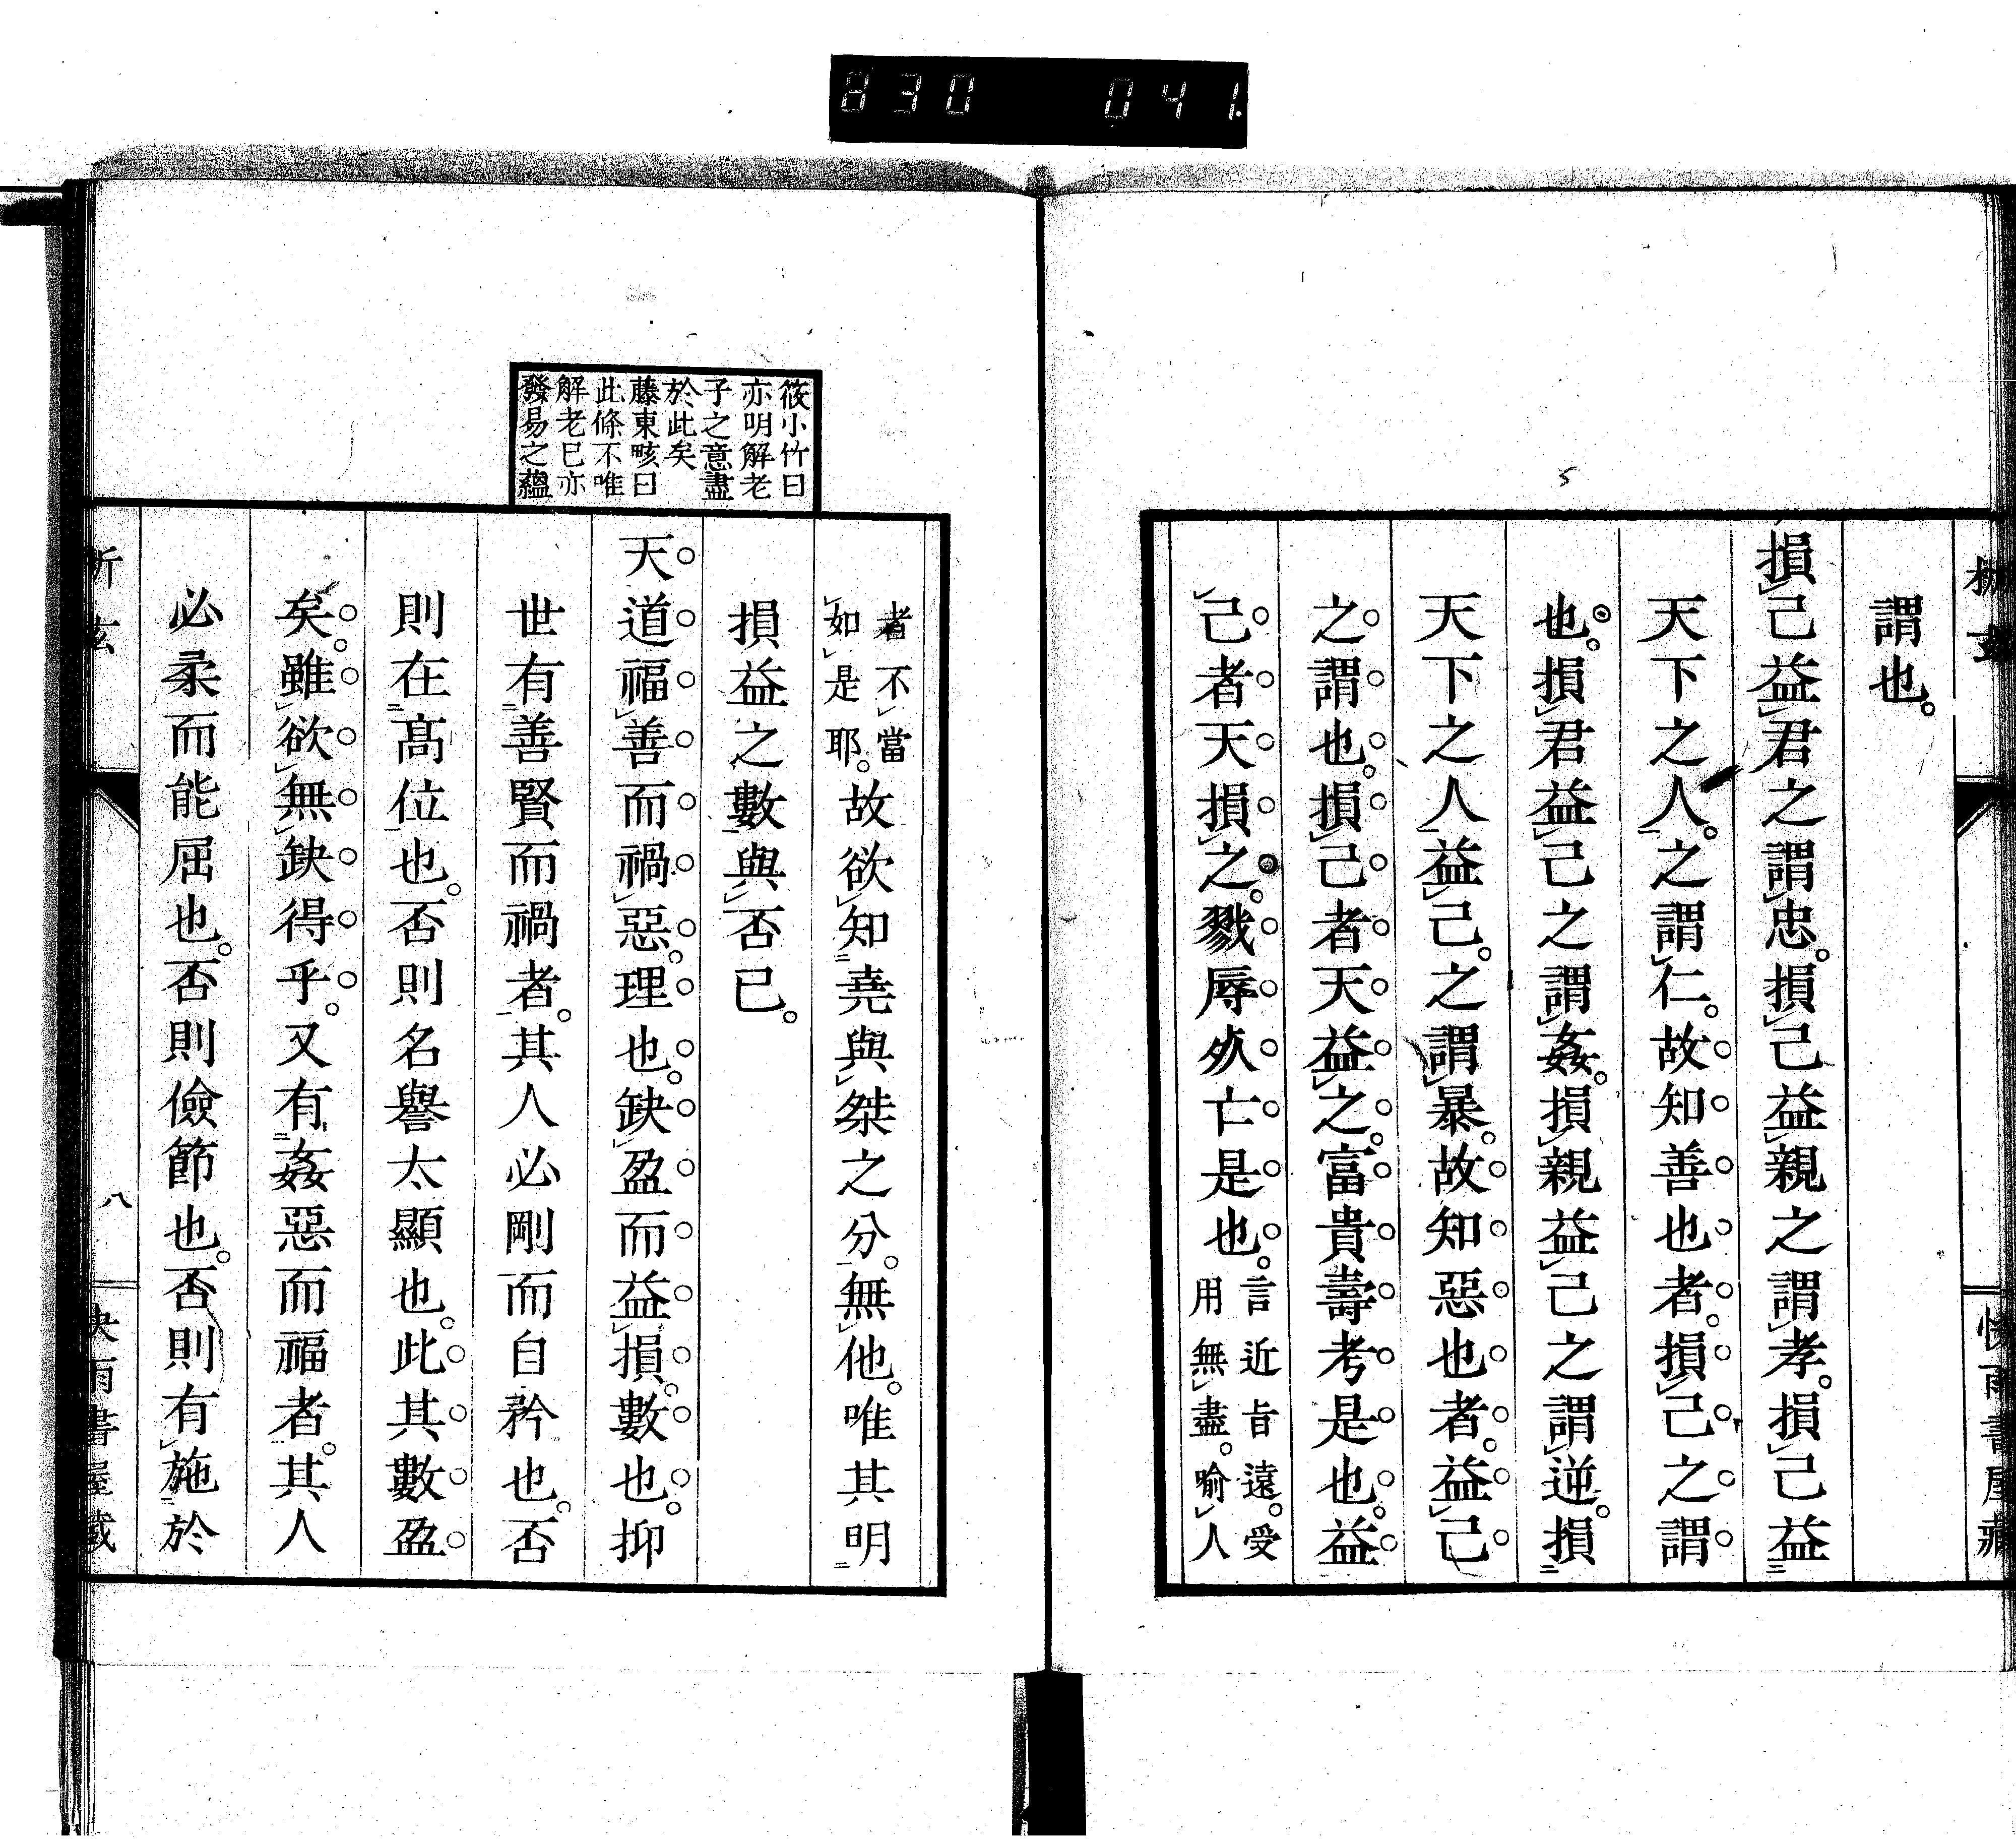 830 041.
謂也。
損己益君之謂忠。損己益親之謂孝。損己益
天下之人。之謂仁。故知善也者。損己之謂
也。損君益己之謂姦。損親益己之謂逆。損
天下之人益己。之謂暴。故知惡也者。益己
之謂也。損己者天益之。富貴壽考是也。益
己者天損之。戮辱
亡是也。言近旨遠。受
用無盡。喻人
快雨書屋藏
筱小竹曰
亦明解老
子之意盡
於此矣
藤東畡曰
此條不唯
解老已亦
發易之蘊
者不當
如是耶。故欲知堯與桀之分。無他。唯其明
損益之數與否已。
天道福善而禍惡。理也。缺盈而益損。數也。抑
世有善賢而禍者。其人必剛而自矜也。否
則在高位也。否則名譽太顯也。此其數盈
矣。雖欲無缺得乎。又有姦惡而福者。其人
必柔而能屈也。否則儉節也。否則有施於
八